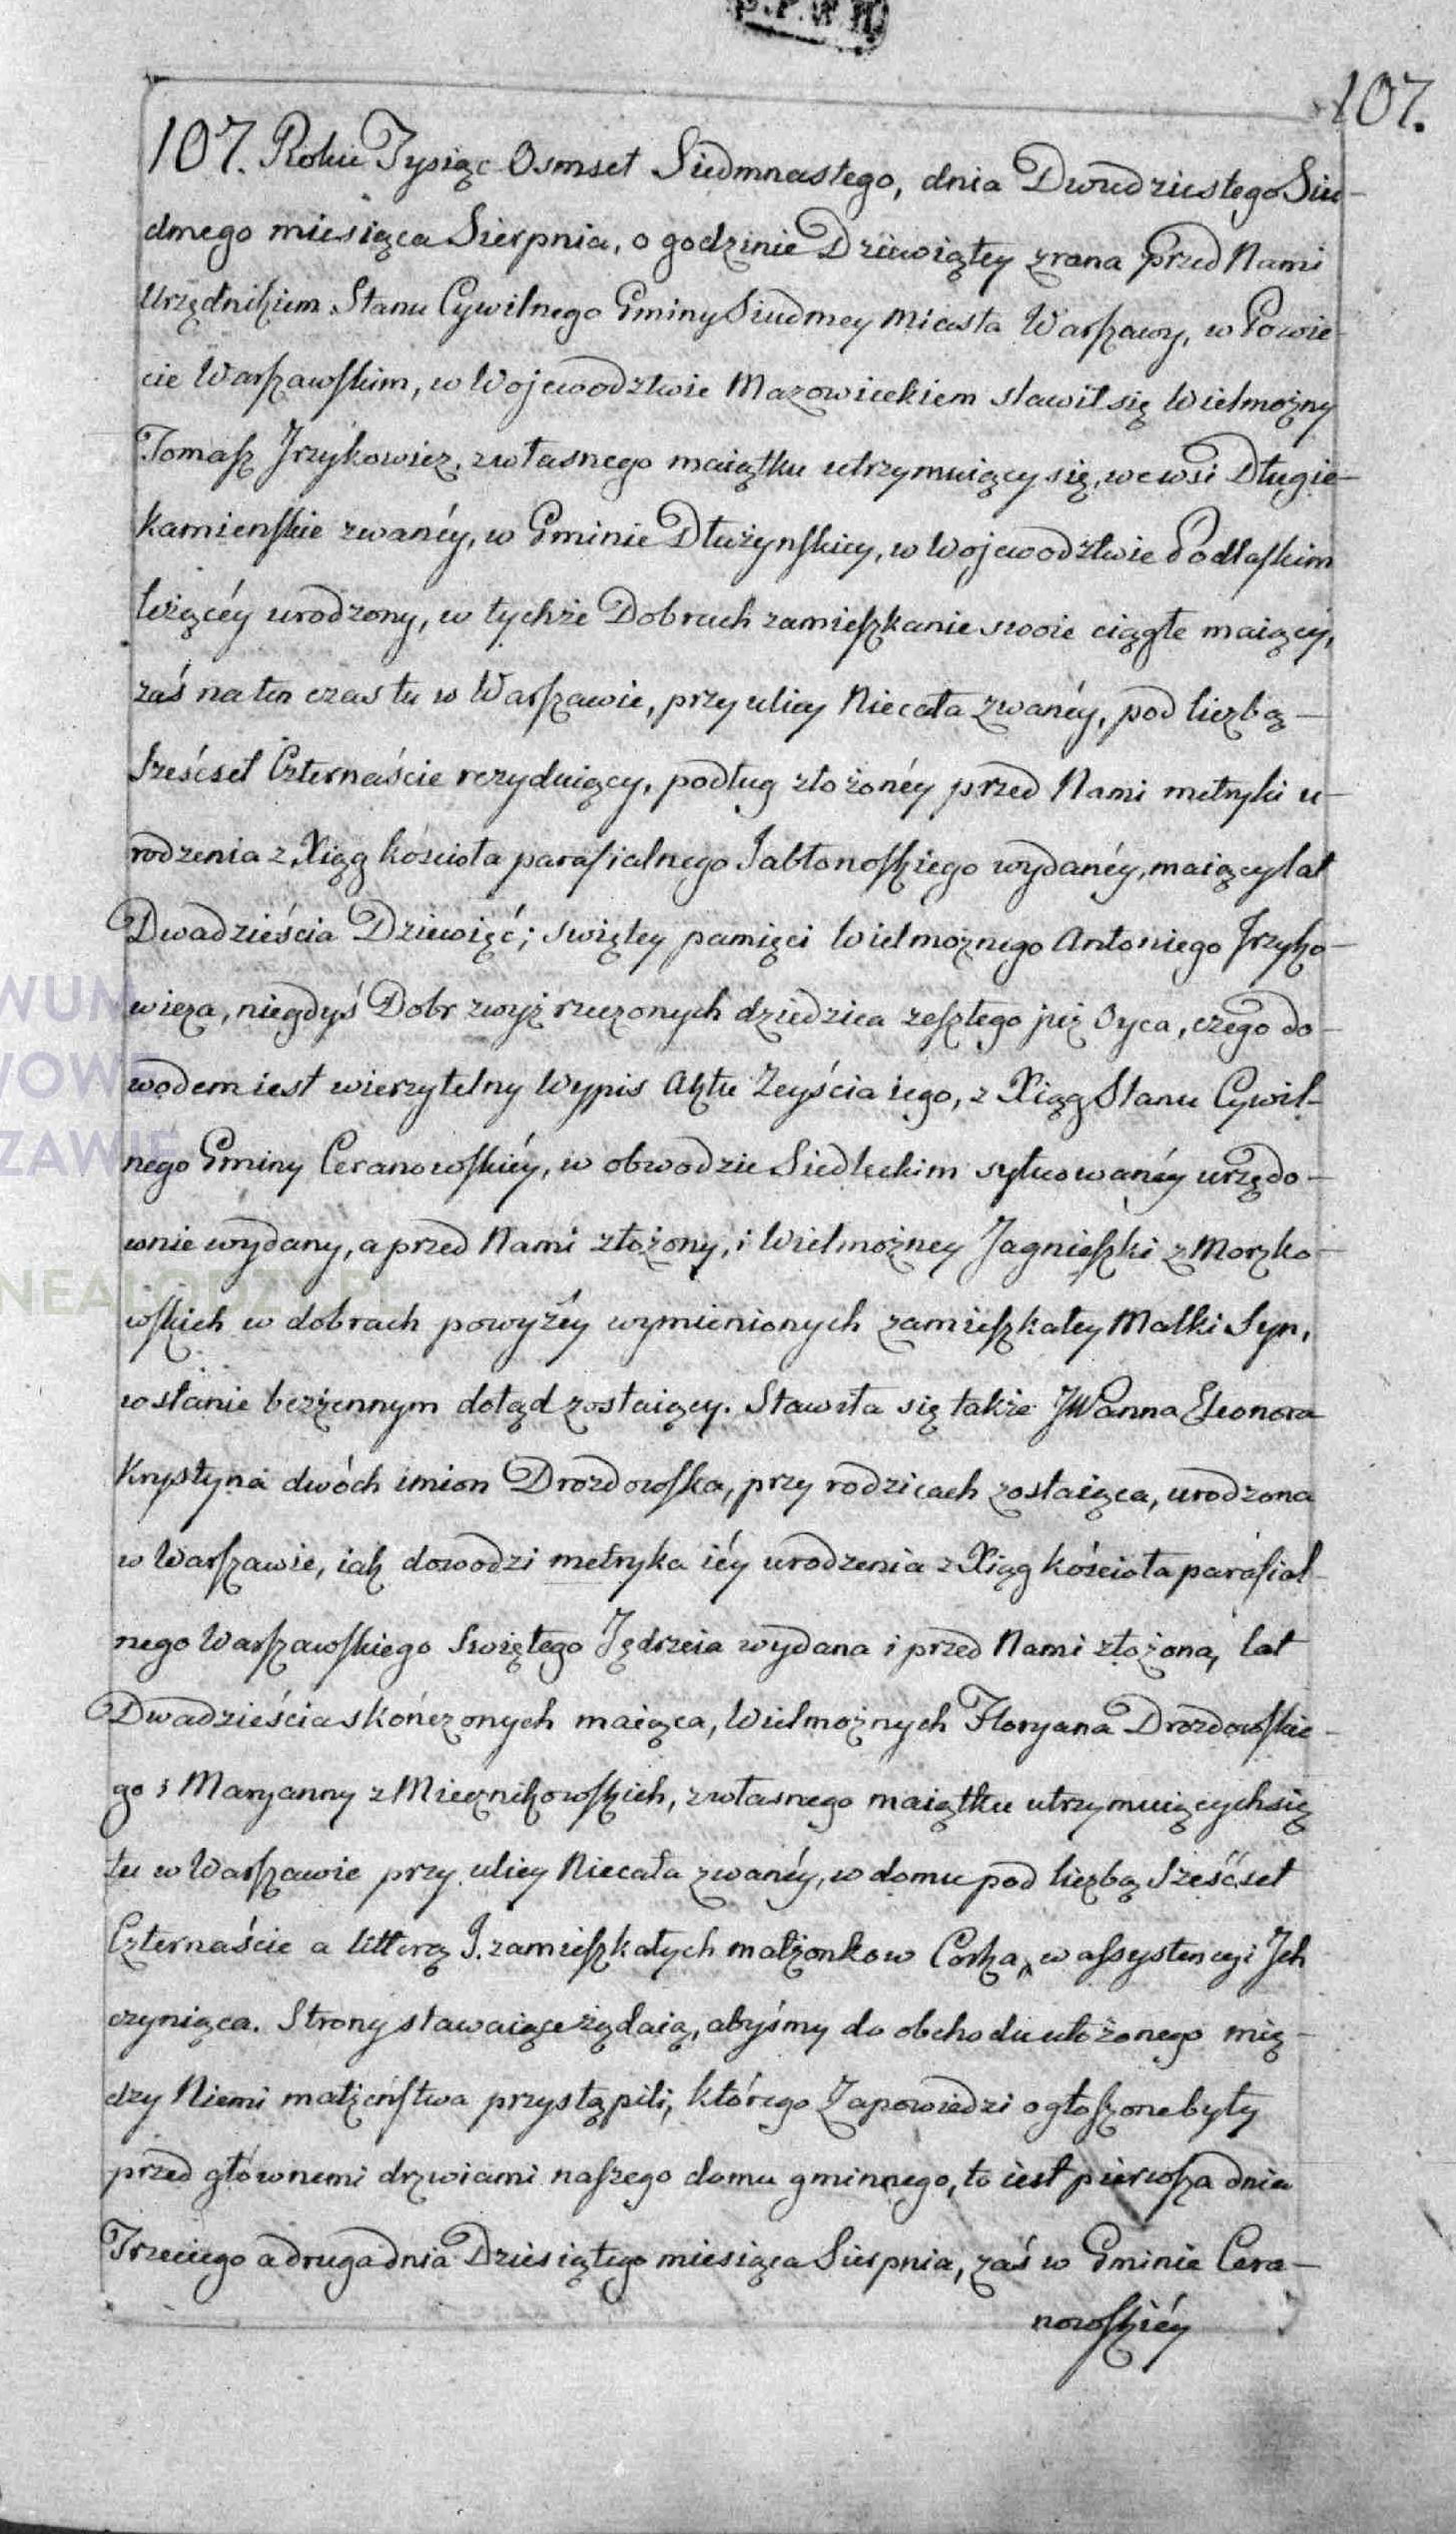 107.
107. Roku Tysiąc Osmset Siedmnastego, dnia Dwudziestego Sie-
dmego miesiąca Sierpnia, o godzinie Dziewiątey zrana przed Nami
Urzędnikiem Stanu Cywilnego Gminy Siudmey Miasta Warszawy, w Powie-
cie Warszawskim, w Wojewodztwie Mazowieckiem stawił się Wielmożny
Tomasz Jrzykowicz, z własnego maiątku utrzymuiący się, we wsi Długie-
Kamienskie zwanéy, w Gminie Dłużynskiey, w Wojewodztwie Podlaskim
leżącéy urodzony, w tychże Dobrach zamieszkanie swoie ciągłe maiący,
zaś na ten czas tu w Warszawie, przy ulicy Niecała zwanéy, pod liczbą
Sześćset Czternaście rezyduiący, podług złożonéy przed Nami metryki u-
rodzenia z Xiąg kościoła parafialnego Jabłonoskiego wydanéy, maiący lat
Dwadzieścia Dziewięć; swiętey pamięci Wielmożnego Antoniego Jrzyko-
wicza, niegdyś Dobr zwyż rzeczonych dziedzica zeszłego już Oyca, czego do-
wodem iest wierzytelny Wypis Aktu Zeyścia iego, z Xiąg Stanu Cywil-
nego Gminy Ceranowskiéy, w obwodzie Siedleckim sytuowanéy urzędo-
wnie wydany, a przed Nami złożony, i Wielmożney Jagnieszki z Morzko-
wskich w dobrach powyżéy wymienionych zamieszkałey Matki Syn,
w stanie bezżennym dotąd zostaiący. Stawiła się także JWPanna Eleonora
Krystyna dwóch imion Drozdowska, przy rodzicach zostaiąca, urodzona
w Warszawie, iak dowodzi metryka iéy urodzenia z Xiąg kościoła parafial-
nego Warszawskiego Swiętego Jędrzeia wydana i przed Nami złożona, lat
Dwadzieścia skończonych maiąca, Wielmożnych Floryana Drozdowskie-
go i Maryanny z Miecznikowskich, z własnego maiątku utrzymuiących się
tu w Warszawie przy ulicy Niecała zwanéy, w domu pod liczbą Sześćset
Czternaście a litterą J. zamieszkałych małżonkow Corka, w assystencyi Jch
czyniąca. Strony stawaiące żądaią, abyśmy do obchodu ułożonego mię-
dzy Niemi małżeństwa przystąpili, którego Zapowiedzi ogłoszone były
przed głównemi drzwiami naszego domu gminnego, to iest pierwsza dnia
Trzeciego a druga dnia Dziesiątego miesiąca Sierpnia, zaś w Gminie Cera-
nowskiéy